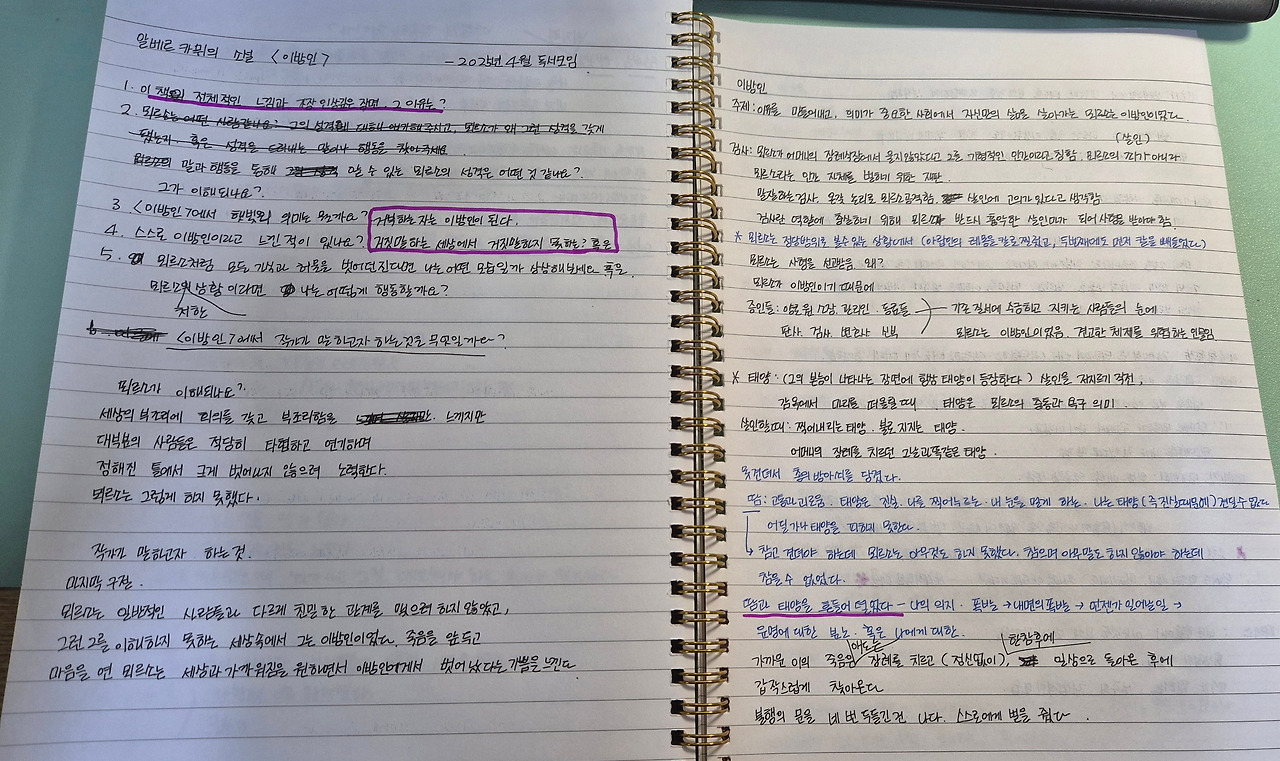 알베르 카뮈의 소설 <이방인> - 2025년 4월 독서모임
1. 이 책의 전체적인 느낌과 가장 인상깊은 장면. 그 이유는?
2. 뫼르소는 어떤 사람같나요? 그의 성격에 대해 얘기해주시고, 뫼르소가 왜 그런 성격을 갖게
됐는지. 혹은 성격을 드러내는 말이나 행동을 찾아주세요.
뫼르소의 말과 행동을 통해 알 수 있는 뫼르소의 성격은 어떤 것 같나요?
그가 이해되나요?
3. <이방인>에서 햇빛의 의미는 뭘까요? 거부하는 자는 이방인이 된다.
4. 스스로 이방인이라고 느낀 적이 있나요? 거짓말하는 세상에서 거짓말하지 못하는? 혹은
5. 뫼르소처럼 모든 가식과 허물을 벗어던진다면 나는 어떤 모습일까 상상해보세요 혹은.
뫼르소의 상황이라면 나는 어떻게 행동할까요?
처한
6. <이방인>에서 작가가 말하고자 하는것은 무엇일까요?
뫼르소가 이해되나요?
세상의 부조리에 회의를 갖고 부조리함을 느끼지만
대부분의 사람들은 적당히 타협하고 연기하며
정해진 틀에서 크게 벗어나지 않으려 노력한다.
뫼르소는 그렇게 하지 못했다.
작가가 말하고자 하는 것.
마지막 구절.
뫼르소는 일반적인 사람들과 다르게 친밀한 관계를 맺으려 하지 않았고,
그런 그를 이해하지 못하는 세상속에서 그는 이방인이었다. 죽음을 앞두고
마음을 연 뫼르소는 세상과 가까워짐을 원하면서 이방인에게서 벗어났다는 기쁨을 느낀다
이방인
주제: 이유를 만들어내고, 의미가 중요한 사회에서 자신만의 삶을 살아가는 뫼르소는 이방인이었다.
(살인)
검사: 뫼르소가 어머니의 장례식장에서 울지않았다고 그를 기형적인 인간이라고 칭함. 뫼르소의 죄가 아니라
뫼르소라는 인간 자체를 벌하기 위한 재판.
말잘하는 검사 온갖 논리로 뫼르소 공격함 살인에 고의가 있다고 생각함
검사란 역할에 충실하기 위해 뫼르소가 반드시 흉악한 살인마가 되어 사형을 받아야 함.
* 뫼르소는 정당방위로 볼수 있는 상황에서 (아랍인이 레몽을 칼로 찔렀고, 두번째에도 먼저 칼을 빼들었다)
뫼르소는 사형을 선고받음. 왜?
뫼르소가 이방인이기 때문에
증인들: 양로원 소장. 관리인. 동료들 기존 질서에 순응하고 지키는 사람들의 눈에
판사. 검사. 변호사. 신부 뫼르소는 이방인이었음. 견고한 체제를 위협하는 인물임
* 태양: (그의 본능이 나타나는 장면에 항상 태양이 등장한다) 살인을 저지르기 직전,
감옥에서 마리를 떠올릴 때. 태양은 뫼르소의 충동과 욕구 의미.
살인할 때: 찍어내리는 태양. 불로 지지는 태양.
어머니의 장례를 치르던 그날과 똑같은 태양.
못견뎌서 총의 방아쇠를 당겼다.
땀: 고통과 괴로움. 태양은 진실. 나를 찍어누르는. 내 눈을 멀게 하는. 나는 태양(즉 진실때문에) 견딜수없다
어딜가나 태양을 피하지 못한다.
참고 견뎌야 하는데 뫼르소는 아무것도 하지 못했다. 참으며 아무말도 하지 않아야 하는데
참을 수 없었다.
땀과 태양을 흔들어 떨쳤다 - 나의 의지. 폭발 → 내면의 폭발 → 언젠가 일어날일 →
운명에 대한 분노. 혹은 나에게 대한.
가까운 이의 죽음의 장례를 치르고 (정신없이), 일상으로 돌아온 후에
한참후에
갑작스럽게 찾아온다
불행의 문을 네 번 두들긴건 나다. 스스로에게 벌을 줬다.